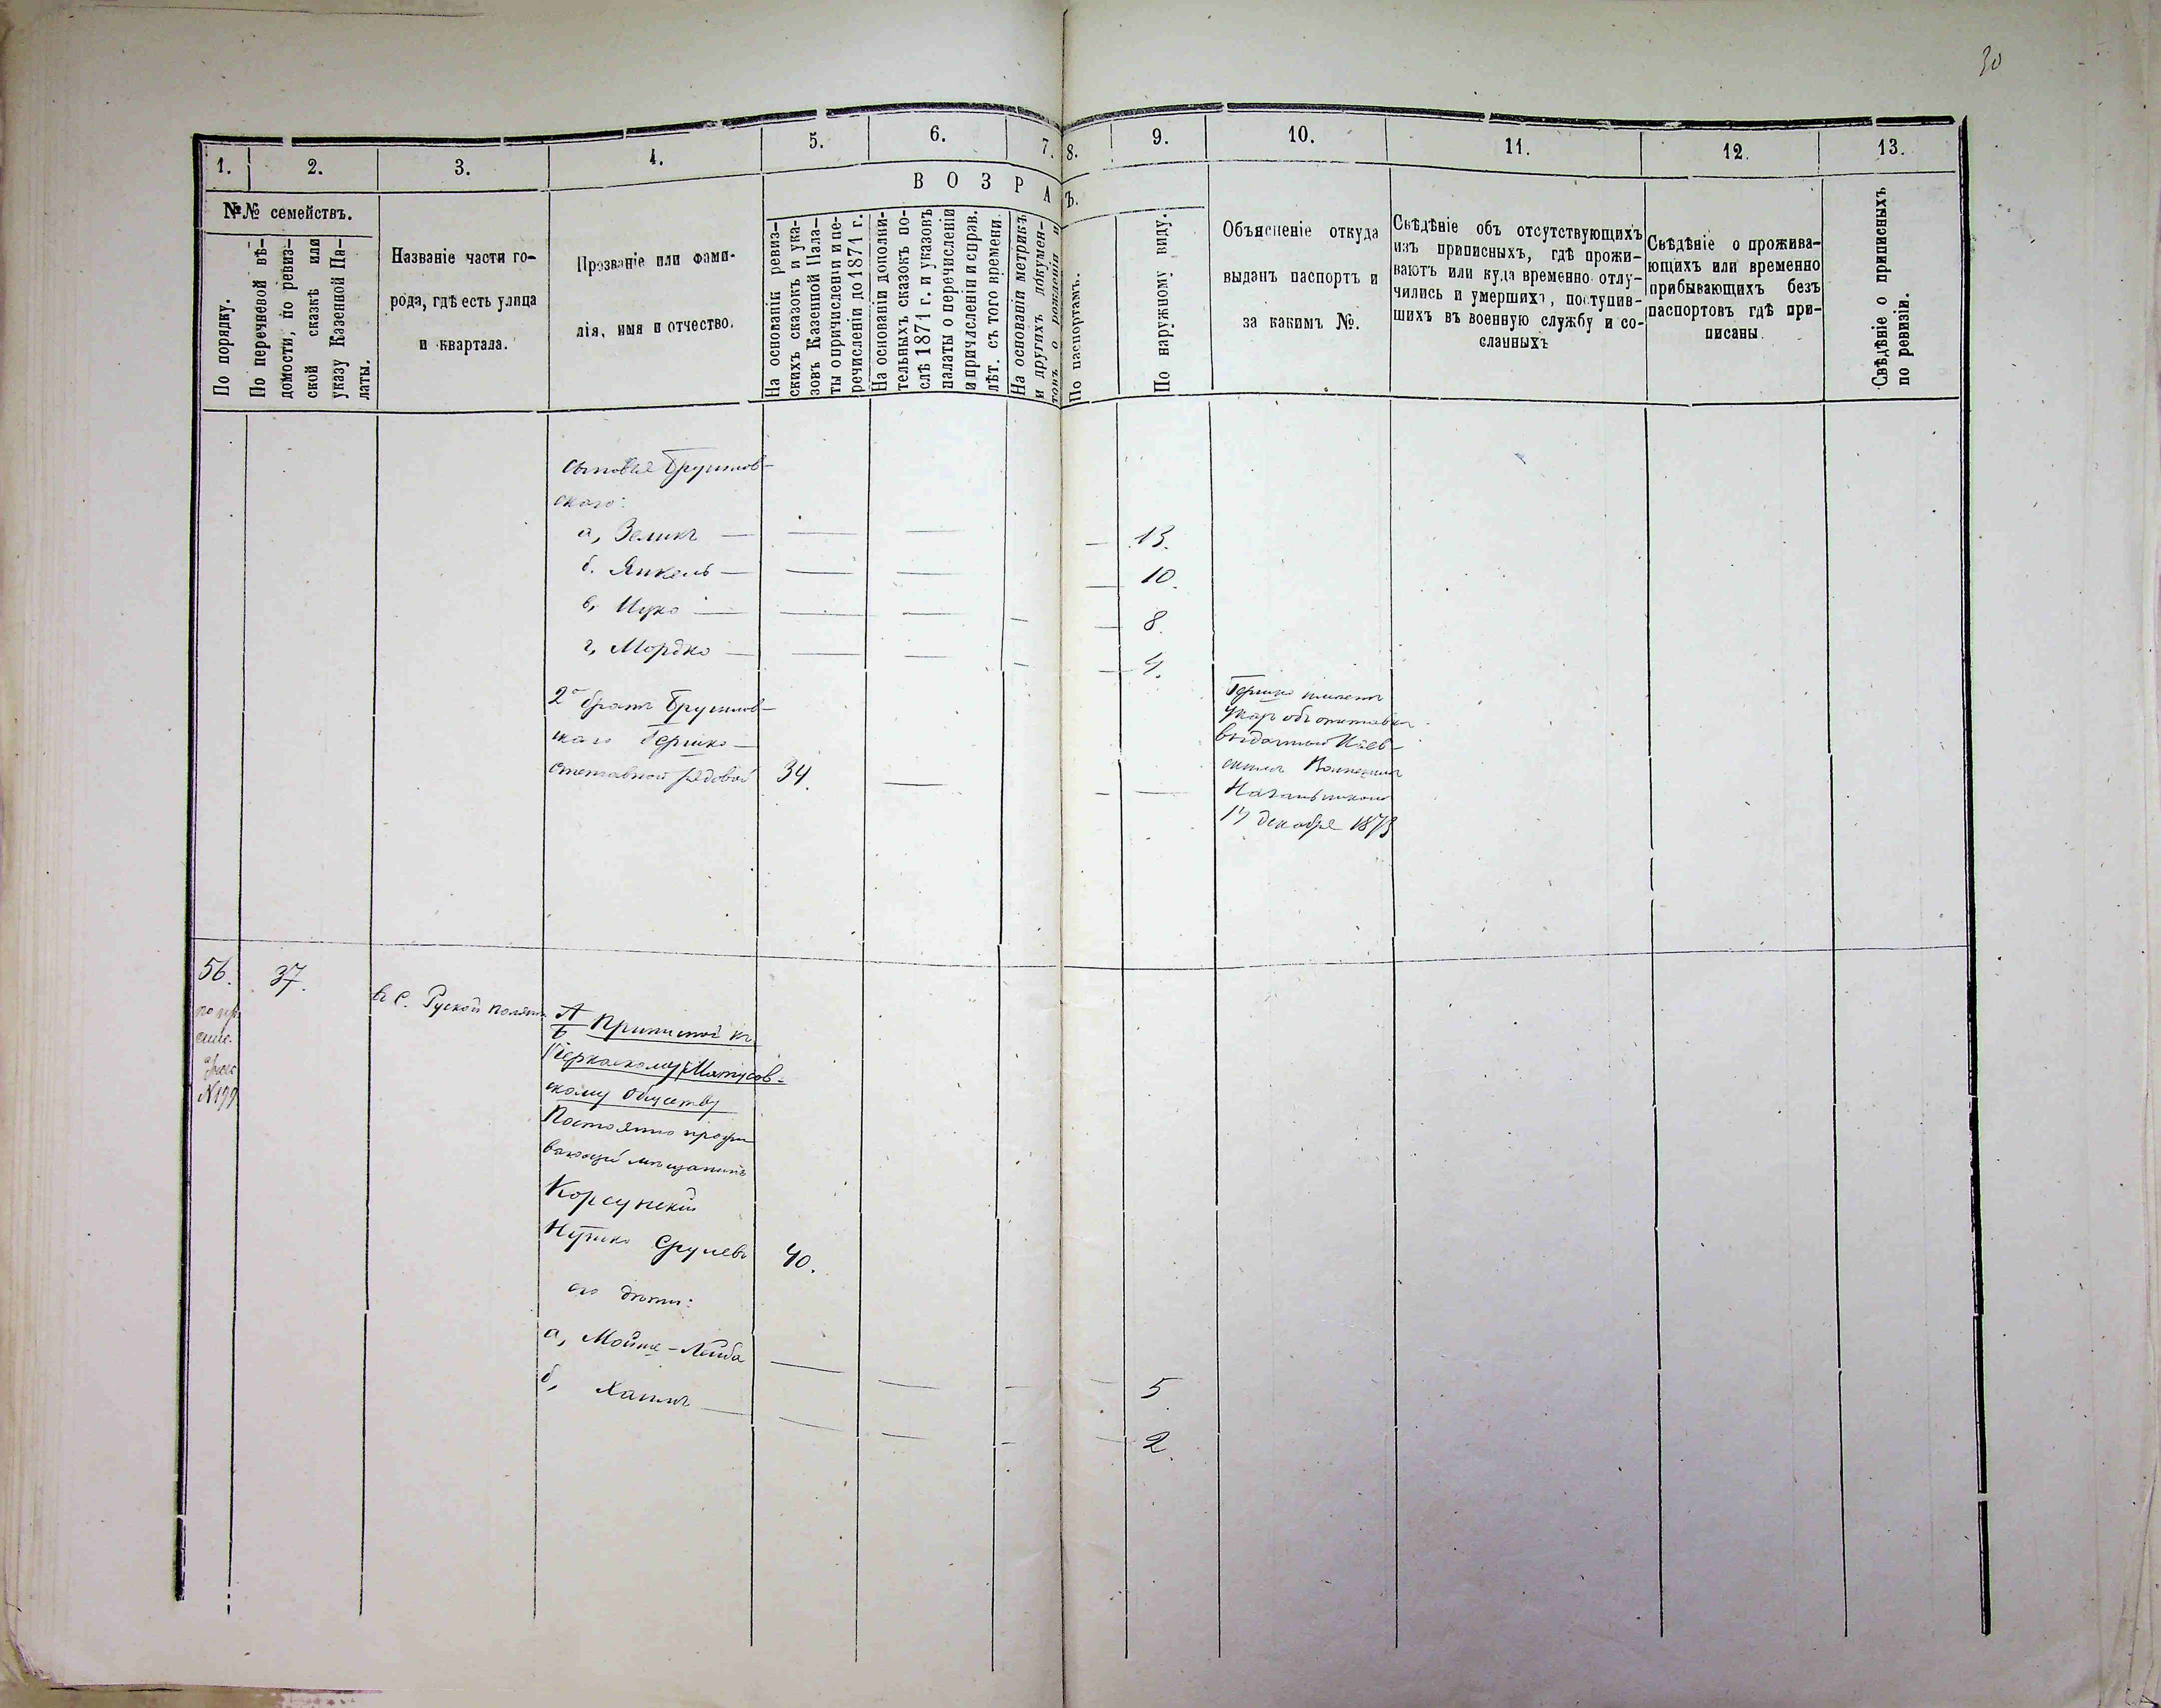 30
1.
2.
3.
4.
5.
6.
7.
8.
9.
10.
11.
12.
13.
№№ семействъ.
По порядку.
По перечневой вѣ-
домости, по ревиз-
ской сказкѣ или
указу Казенной Па-
латы.
Названіе части го-
рода, гдѣ есть улица
и квартала.
Прозваніе или фами-
лія, имя и отчество.
ВОЗРА
Ъ.
На основаніи ревиз-
скихъ сказокъ и ука-
зовъ Казенной Пала-
ты о причисленіи и пе-
речисленіи до 1871 г.
На основаніи дополни-
тельныхъ сказокъ по-
слѣ 1871 г. и указовъ
палаты о перечисленіи
и причисленіи и справ.
лѣт. съ того времени.
На основаніи метрикъ
и другихъ докумен-
товъ о рожденіи и
По паспортамъ.
По наружному виду.
Объясненіе откуда
выданъ паспортъ и
за какимъ №.
Свѣдѣніе объ отсутствующихъ
изъ приписныхъ, гдѣ прожи-
ваютъ или куда временно отлу-
чились и умершихъ, поступив-
шихъ въ военную службу и со-
сланныхъ
Свѣдѣніе о прожива-
ющихъ или временно
прибывающихъ безъ
паспортовъ гдѣ при-
писаны.
Свѣдѣніе о приписныхъ
по ревизіи.
сыновья Брушлов-
скаго:
а, Зеликъ — 13.
б. Янкель — 10.
в, Ицко — 8.
г, Мордко — 4.
2й братъ Брушлов-
скаго Гершко —
отставной рядовой 34.
Гершко имѣетъ
указъ объ отставкѣ
выданный Кіев-
скимъ Воинскимъ
Начальникомъ
17 декабря 1873
56. 37. въ С. Руской поляни
№ 177
А
Б Приписной къ
Черкаскому Матусов-
скому Обществу
Постоянно прожи
вающій мѣщанинъ
Корсунскій
Срулевъ 40.
его дѣти:
а, Мойше-Лейба 5
б, Хаимъ 2.